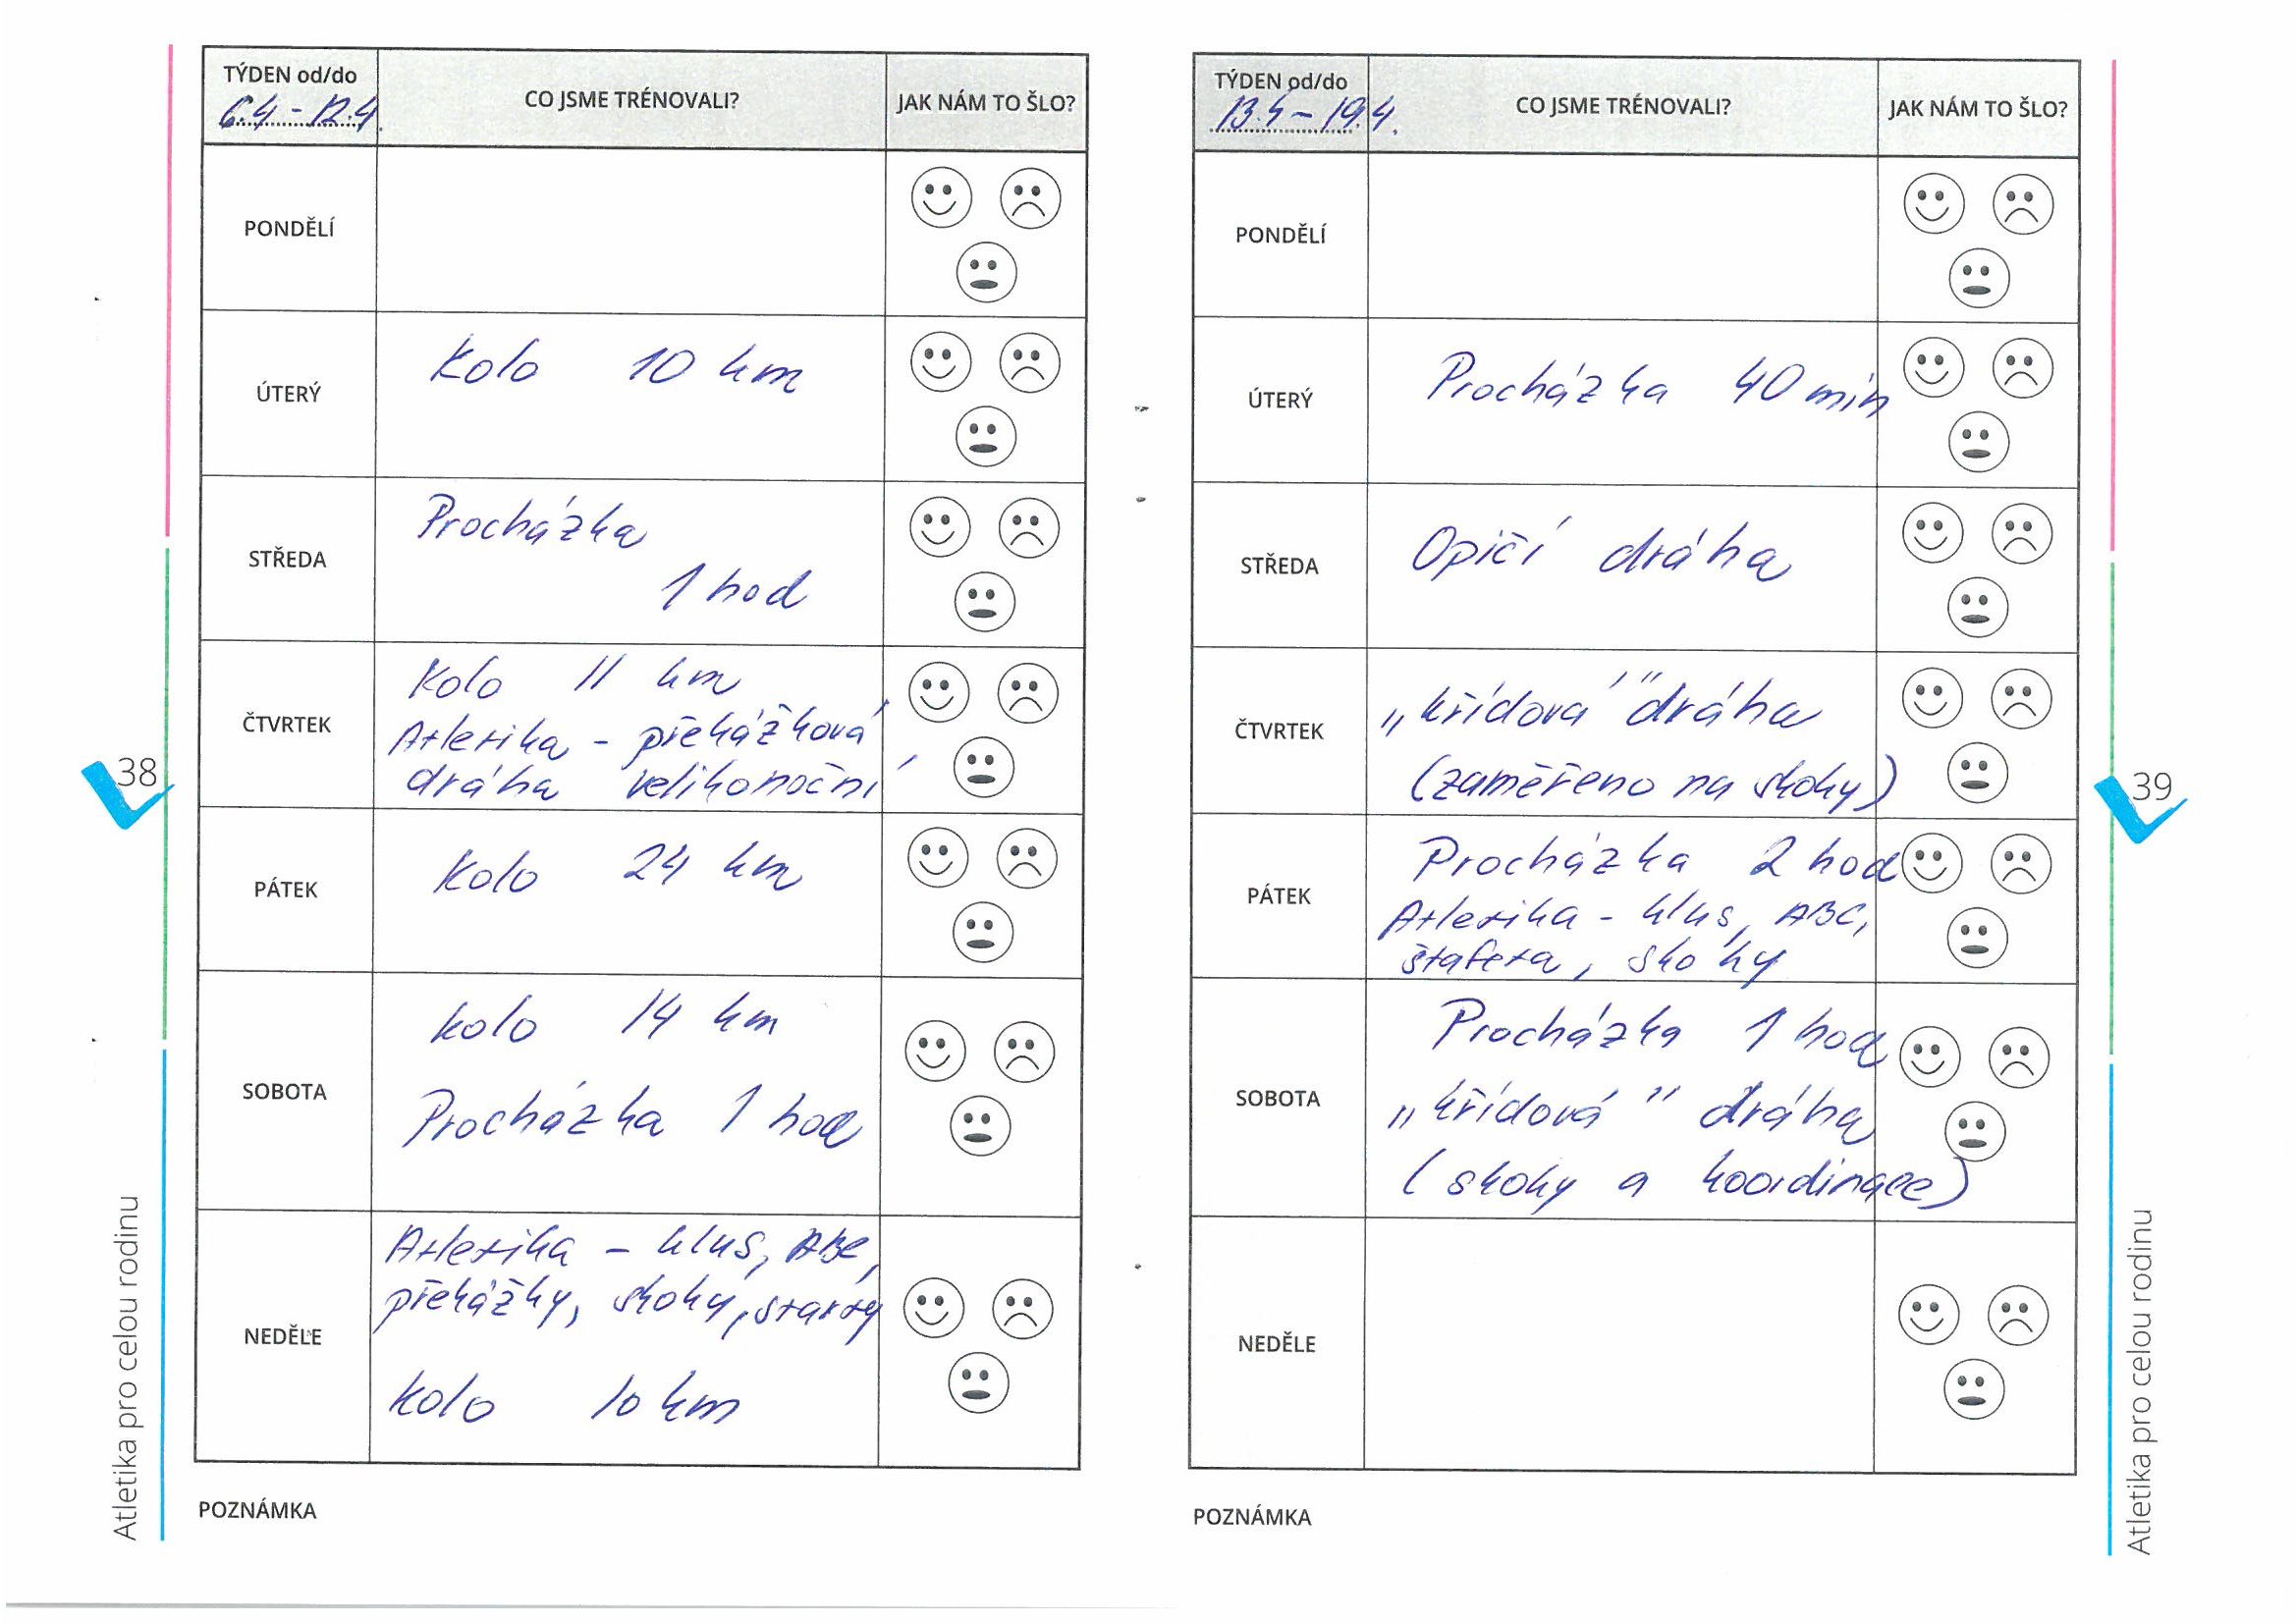 TÝDEN od/do
6.4 - 12.4.
CO JSME TRÉNOVALI?
JAK NÁM TO ŠLO?
PONDĚLÍ
ÚTERÝ
Kolo 10 km
STŘEDA
Procházka
1 hod
ČTVRTEK
Kolo 11 km
Atletika - překážková
dráha velikonoční
PÁTEK
Kolo 24 km
SOBOTA
Kolo 14 km
Procházka 1 hod
NEDĚLE
Atletika - klus, ABC,
překážky, skoky, starty
Kolo 10 km
POZNÁMKA
38
Atletika pro celou rodinu
TÝDEN od/do
13.4 - 19.4.
CO JSME TRÉNOVALI?
JAK NÁM TO ŠLO?
PONDĚLÍ
ÚTERÝ
Procházka 40 min
STŘEDA
Opičí dráha
ČTVRTEK
„křídová" dráha
(zaměřeno na skoky)
PÁTEK
Procházka 2 hod
Atletika - klus, ABC,
štafeta, skoky
SOBOTA
Procházka 1 hod
„křídová" dráha
(skoky a koordinace)
NEDĚLE
POZNÁMKA
39
Atletika pro celou rodinu